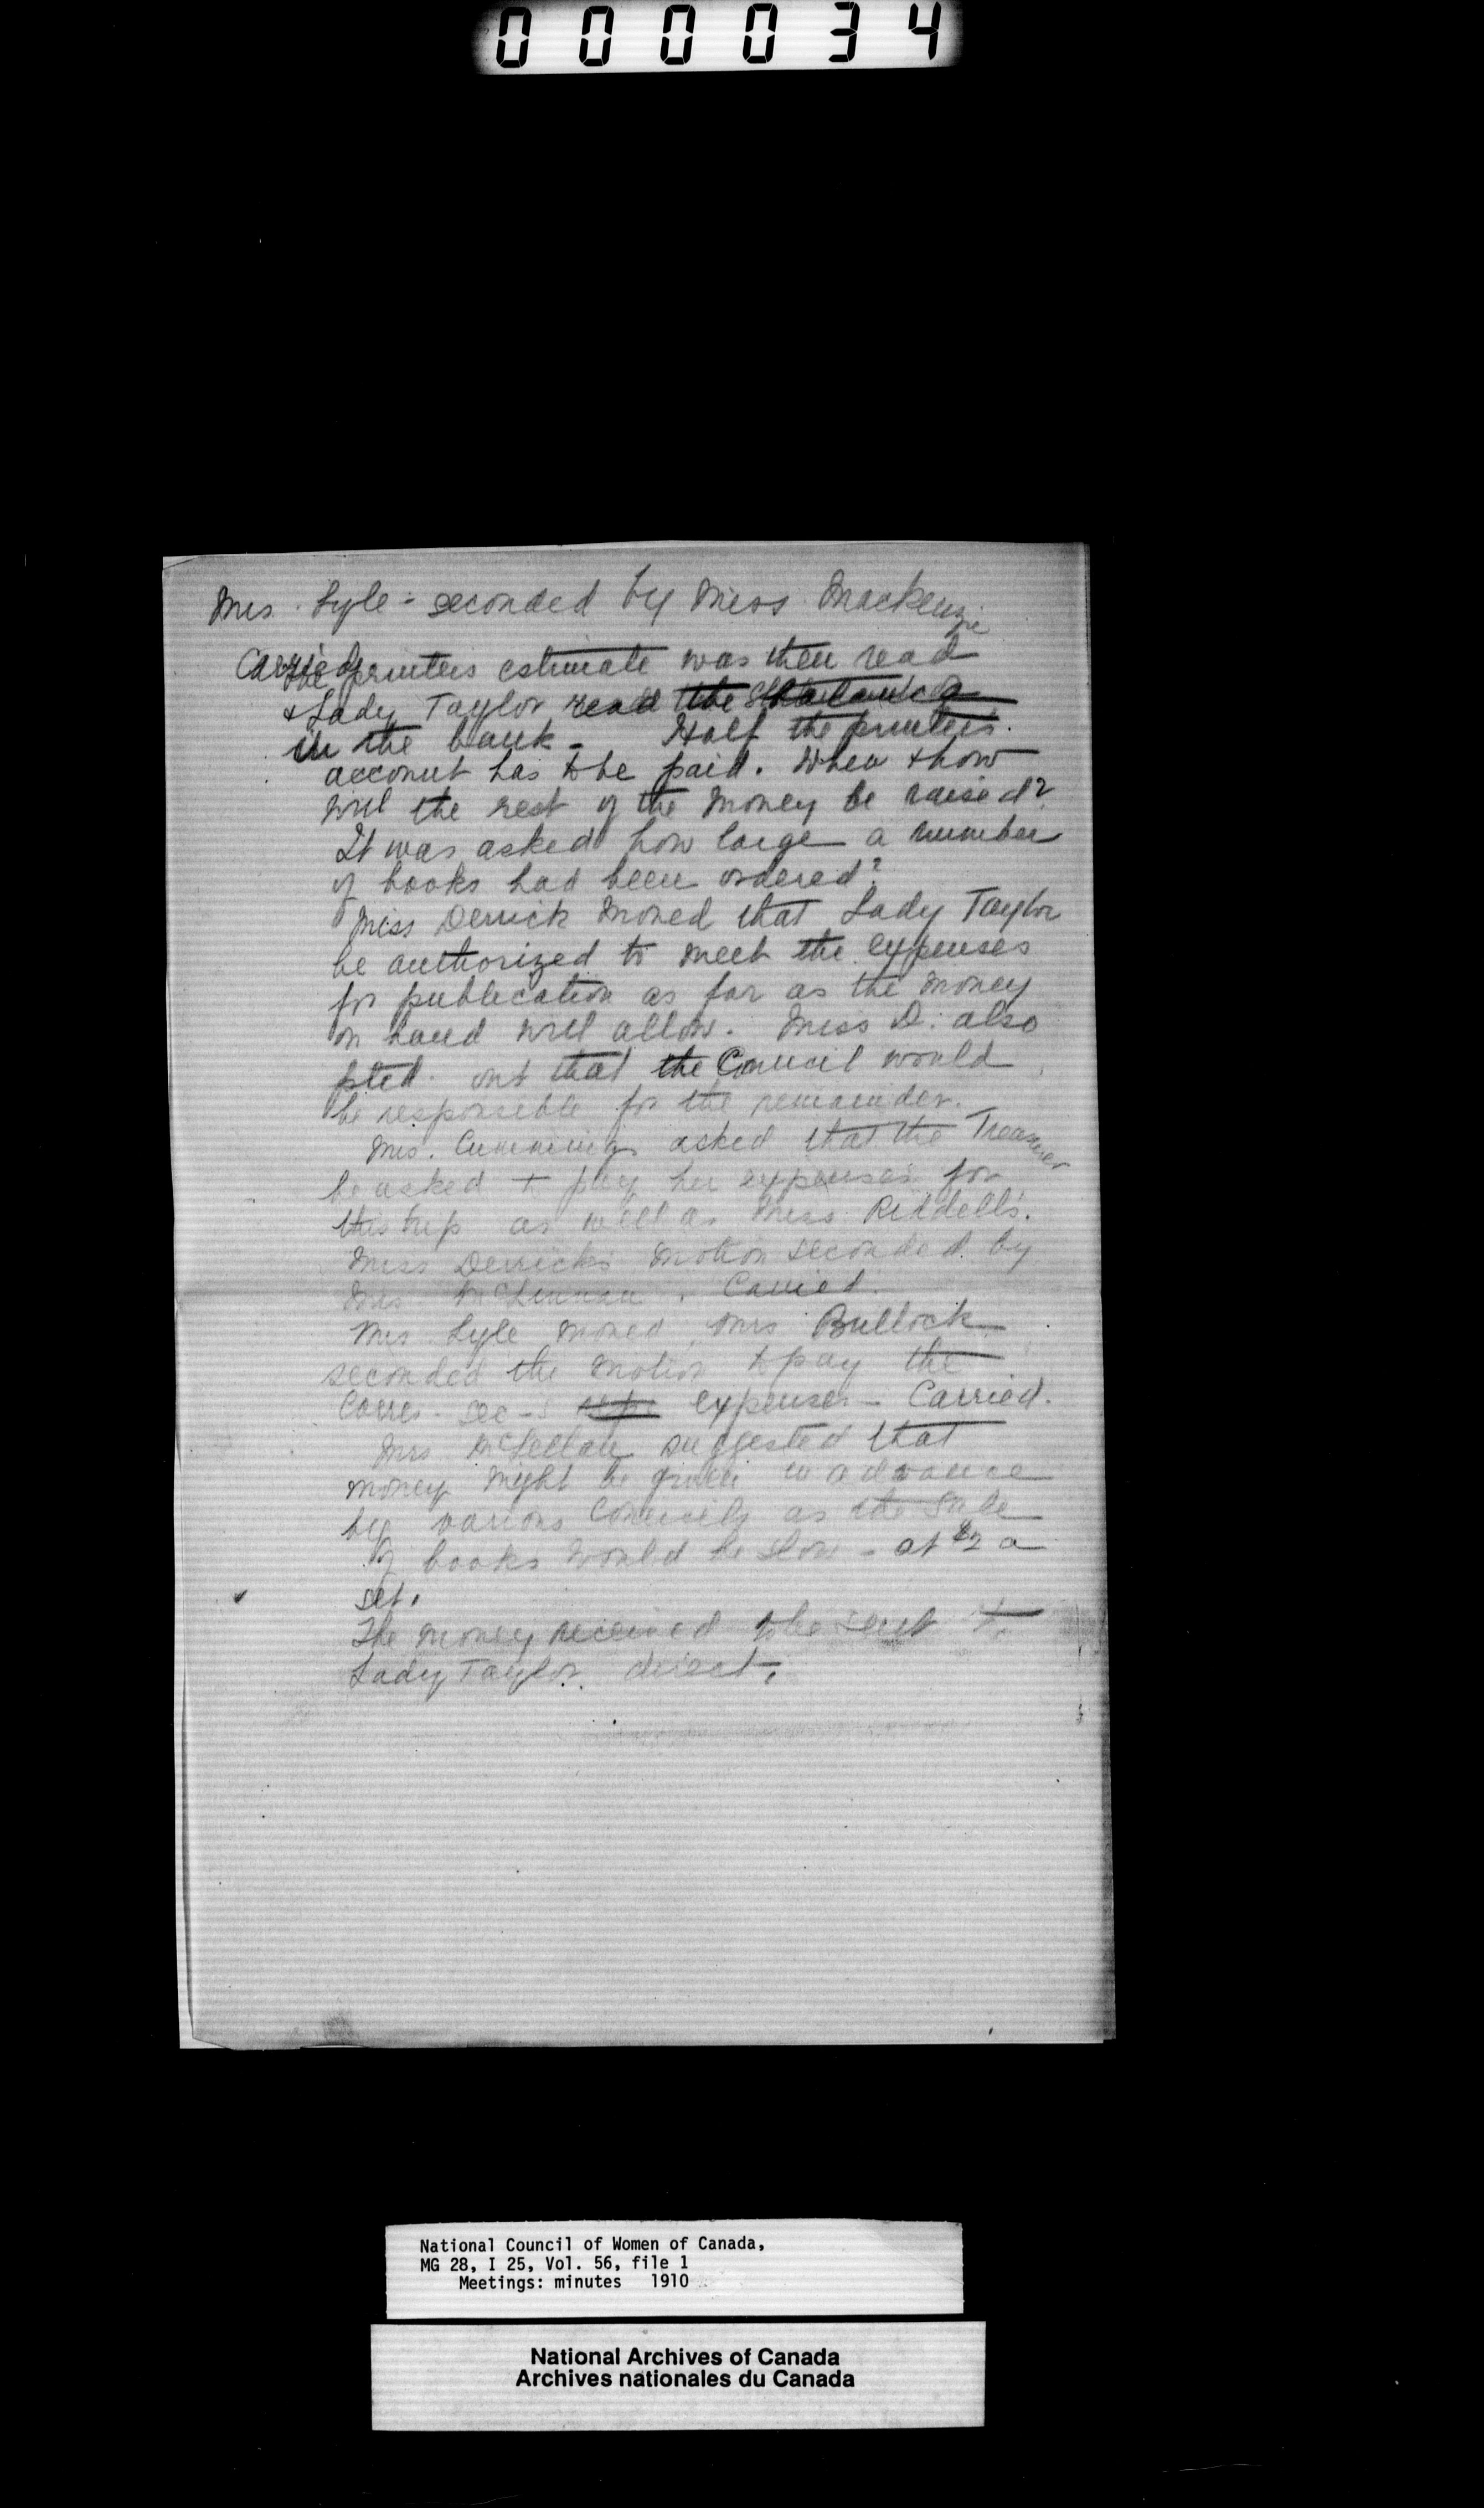 000034
Mrs. Lyle - seconded by Miss Mackenzie
Carried
The printers estimate was then read
& Lady Taylor read the
in the bank - Half the printers
account has to be paid. When & how
will the rest of the money be raised?
It was asked how large a number
of books had been ordered?
Miss Derrick moved that Lady Taylor
be authorized to meet the expenses
for publication as far as the money
on hand will allow. Miss D. also
pted. out that the Council would
be responsible for the remainder.
Mrs. Cummings asked that the Treasurer
be asked to pay her expenses for
this trip as well as Miss Riddell's.
Miss Derrick's motion seconded by
Mrs McLennan. Carried.
Mrs Lyle moved, Mrs Bullock
seconded the motion to pay the
Corres - sec-s expenses - Carried.
Mrs McLellan suggested that
money might be given in advance
by various Councils as the sale
of books would be slow - at $2 a
set.
The money received to be sent to
Lady Taylor direct.
National Council of Women of Canada,
MG 28, I 25, Vol. 56, file 1
Meetings: minutes 1910
National Archives of Canada
Archives nationales du Canada